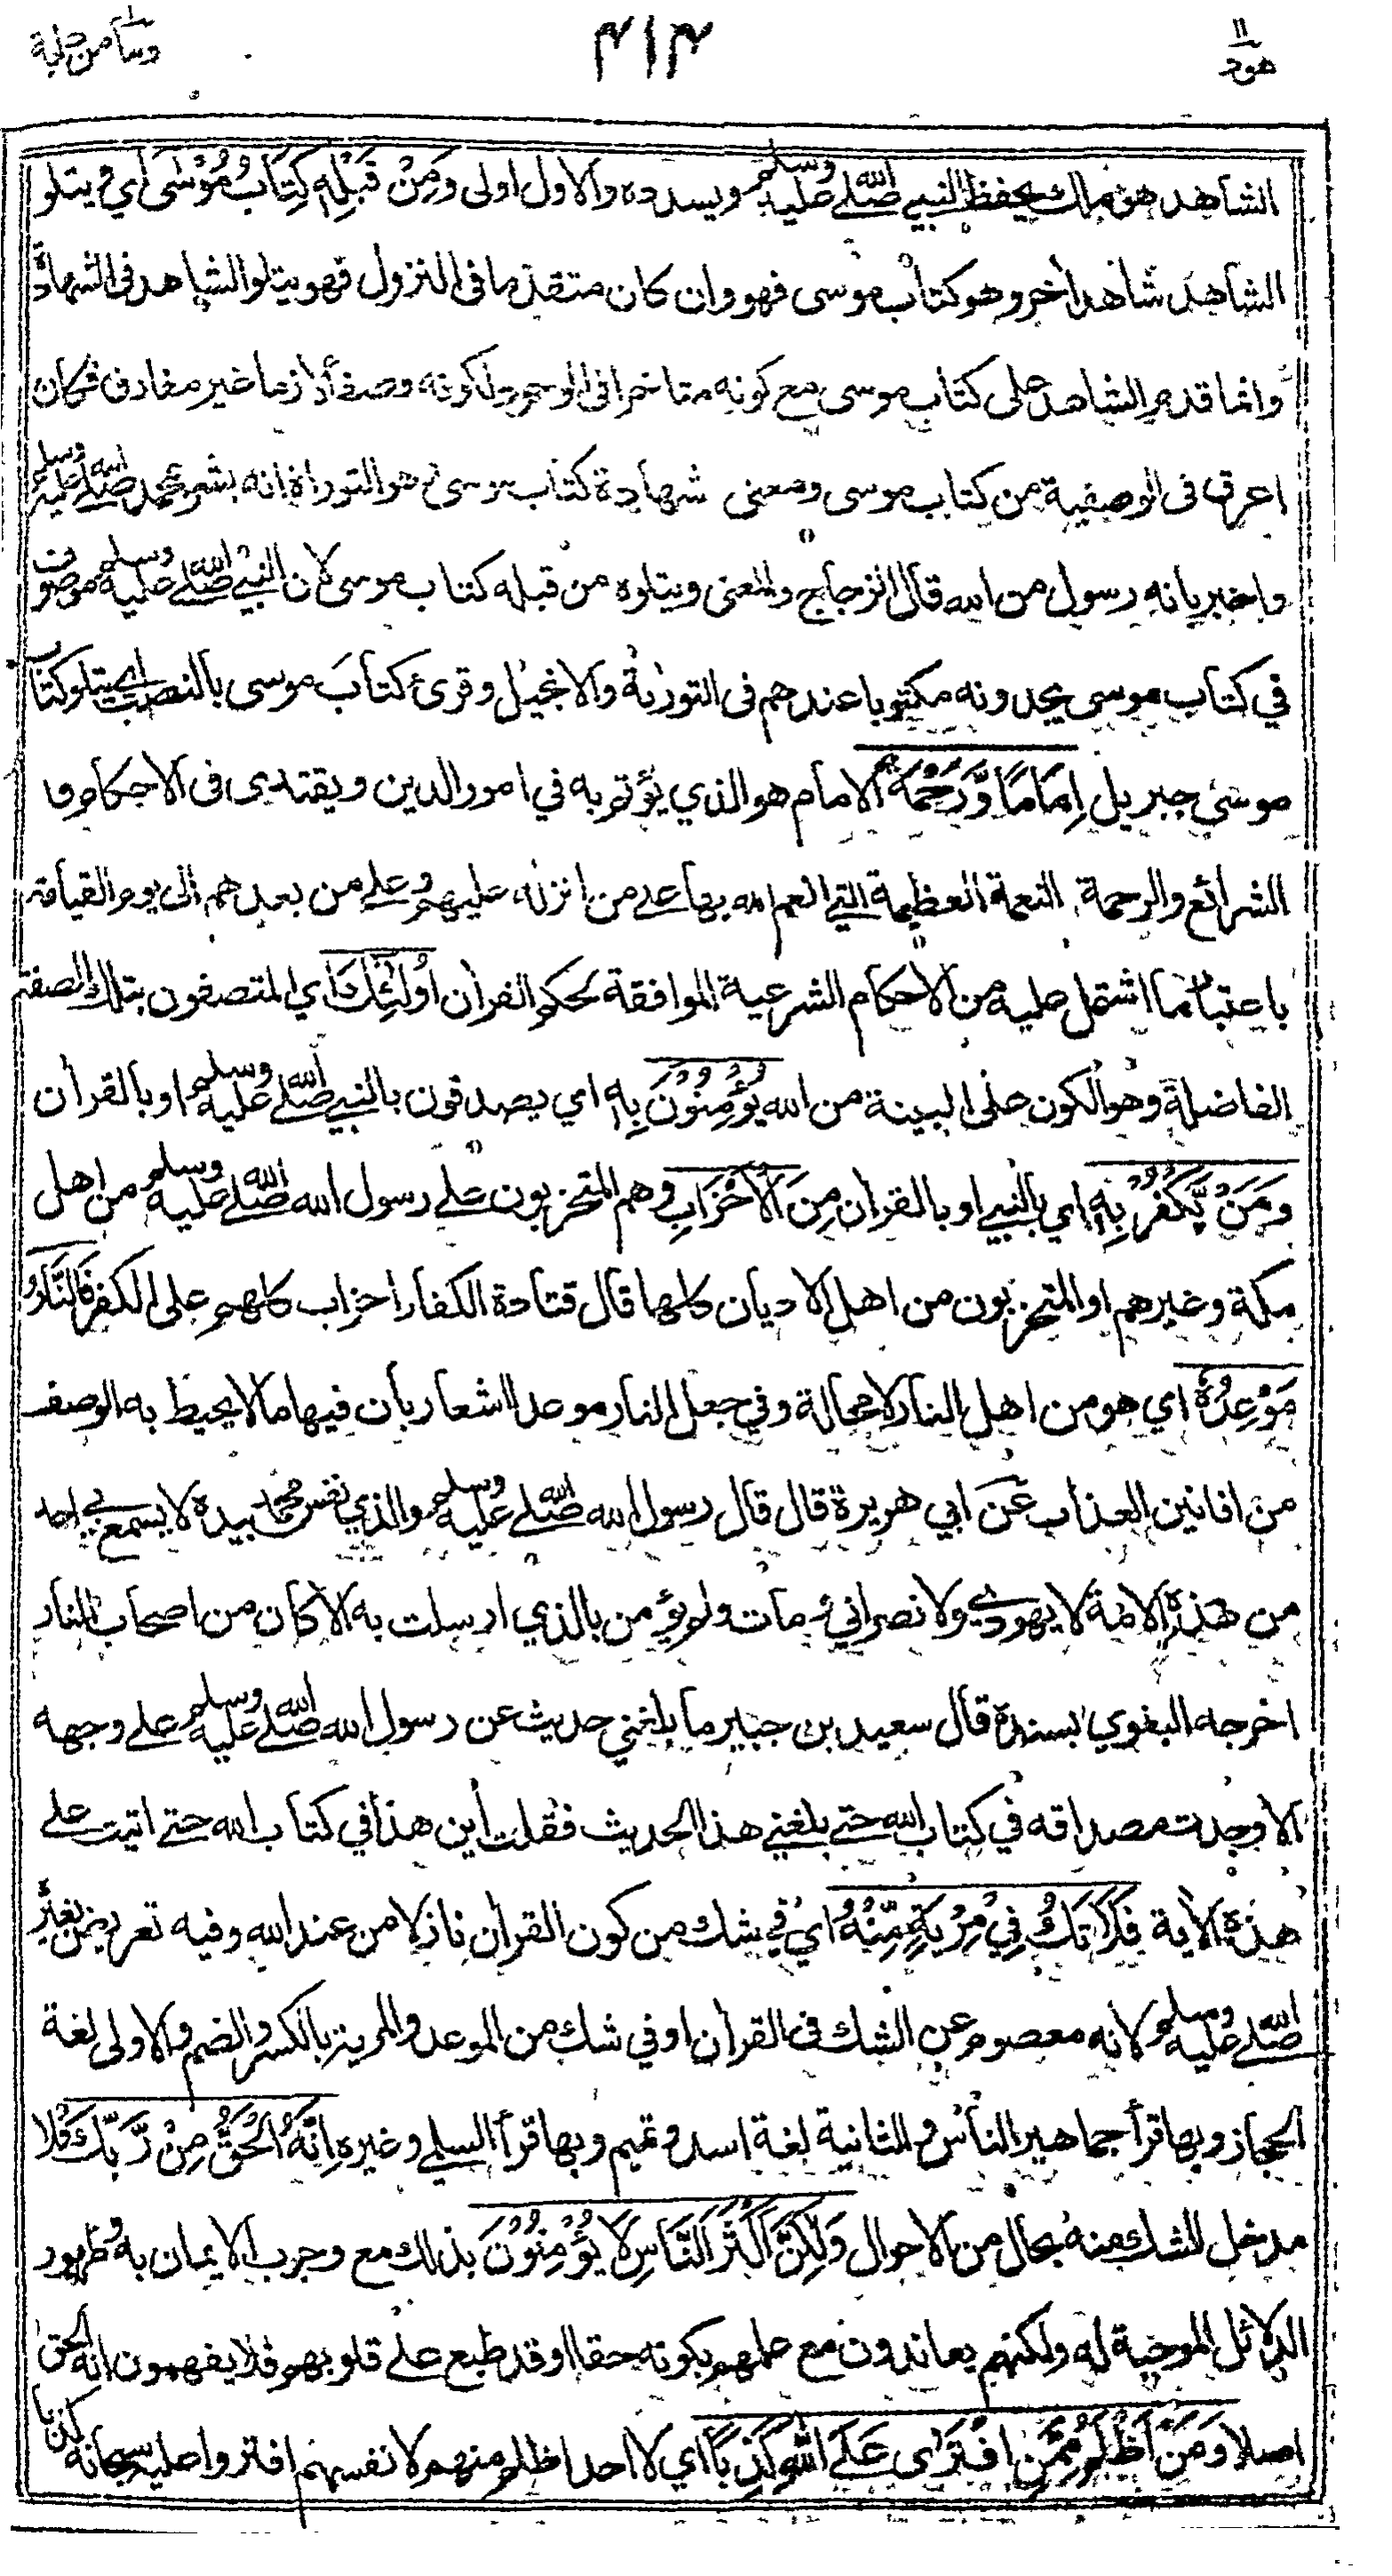 ١١
هود
٤١٤
ومامن دابة
الشاهد هو ملك يحفظ النبي صلى الله عليه وسلم ويسدده والاول اولى وَمِنْ قَبْلِهِ كِتَابُ مُوْسٰى اي ويتلو
الشاهدَ شاهدٌ اٰخر وهو كتاب موسى فهو وان كان متقدما فى النزول فهو يتلو الشاهد فى الشهادة
وانما قدم الشاهد على كتاب موسى مع كونه متاخرا فى الوجود لكونه وصفا لازما غير مفارق فكان
اعرق فى الوصفية من كتاب موسى ومعنى شهادة كتاب موسى و هو التوراة انه بشر بمحمد صلى الله عليه وسلم
واخبر بانه رسول من الله قال الزجاج والمعنى ويتلوه من قبله كتاب موسى لان النبي صلى الله عليه وسلم موصوف
في كتاب موسى يجدونه مكتوبا عندهم فى التورٰىة والانجيل وقرئ كتابَ موسى بالنصب اي يتلو كتاب
موسى جبريل اِمَامًا وَّرَحْمَةً الامام هو الذي يؤتم به في امور الدين ويقتدى فى الاحكام و
الشرائع والرحمة النعمة العظيمة التي انعم الله بها على من انزله عليهم وعلى من بعدهم الى يوم القيامة
باعتبار ما اشتمل عليه من الاحكام الشرعية الموافقة لحكم القرآن اُولٰٓئِكَ اي المتصفون بتلك الصفة
الفاضلة وهو الكون على البينة من الله يُؤْمِنُوْنَ بِهٖ اي يصدقون بالنبي صلى الله عليه وسلم او بالقرآن
وَمَنْ يَّكْفُرْ بِهٖ اي بالنبي او بالقرآن مِنَ الْاَحْزَابِ وهم المتحزبون على رسول الله صلى الله عليه وسلم من اهل
مكة وغيرهم او المتحزبون من اهل الاديان كلها قال قتادة الكفار احزاب كلهم على الكفر فَالنَّارُ
مَوْعِدُهٗ اي هو من اهل النار لا محالة وفي جعل النار موعدا اشعار بان فيها مالا يحيط به الوصف
من افانين العذاب عَن ابي هريرة قال قال رسول الله صلى الله عليه وسلم والذي نفس محمد بيده لا يسمع بي احد
من هذه الامة لا يهودي ولا نصراني ومات ولم يؤمن بالذي ارسلت به الا كان من اصحاب النار
اخرجه البغوي بسنده قال سعيد بن جبير ما بلغني حديث عن رسول الله صلى الله عليه وسلم على وجهه
الا وجدت مصداقه في كتاب الله حتى بلغني هذا الحديث فقلت أين هذا في كتاب الله حتى اتيت على
هذه الآية فَلَا تَكُ فِيْ مِرْيَةٍ مِّنْهُ اي في شك من كون القرآن نازلا من عند الله وفيه تعريض بغيره
صلى الله عليه وسلم لانه معصوم عن الشك فى القرآن او في شك من الموعد والمرية بالكسر والضم والاولى لغة
الحجاز وبها قرأ جماهير الناس والثانية لغة اسد وتميم وبها قرأ السلمي وغيره اِنَّهُ الْحَقُّ مِنْ رَّبِّكَ فلا
مدخل للشك منه بحال من الاحوال وَلٰكِنَّ اَكْثَرَ النَّاسِ لَا يُؤْمِنُوْنَ بذلك مع وجوب الايمان به وظهور
الدلائل الموجبة له ولكنهم يعاندون مع علمهم بكونه حقا او قد طبع على قلوبهم فلا يفهمون انه الحق
اصلا وَمَنْ اَظْلَمُ مِمَّنِ افْتَرٰى عَلَى اللهِ كَذِبًا اي لا احد اظلم منهم لانفسهم افتروا عليه سبحانه كذبا